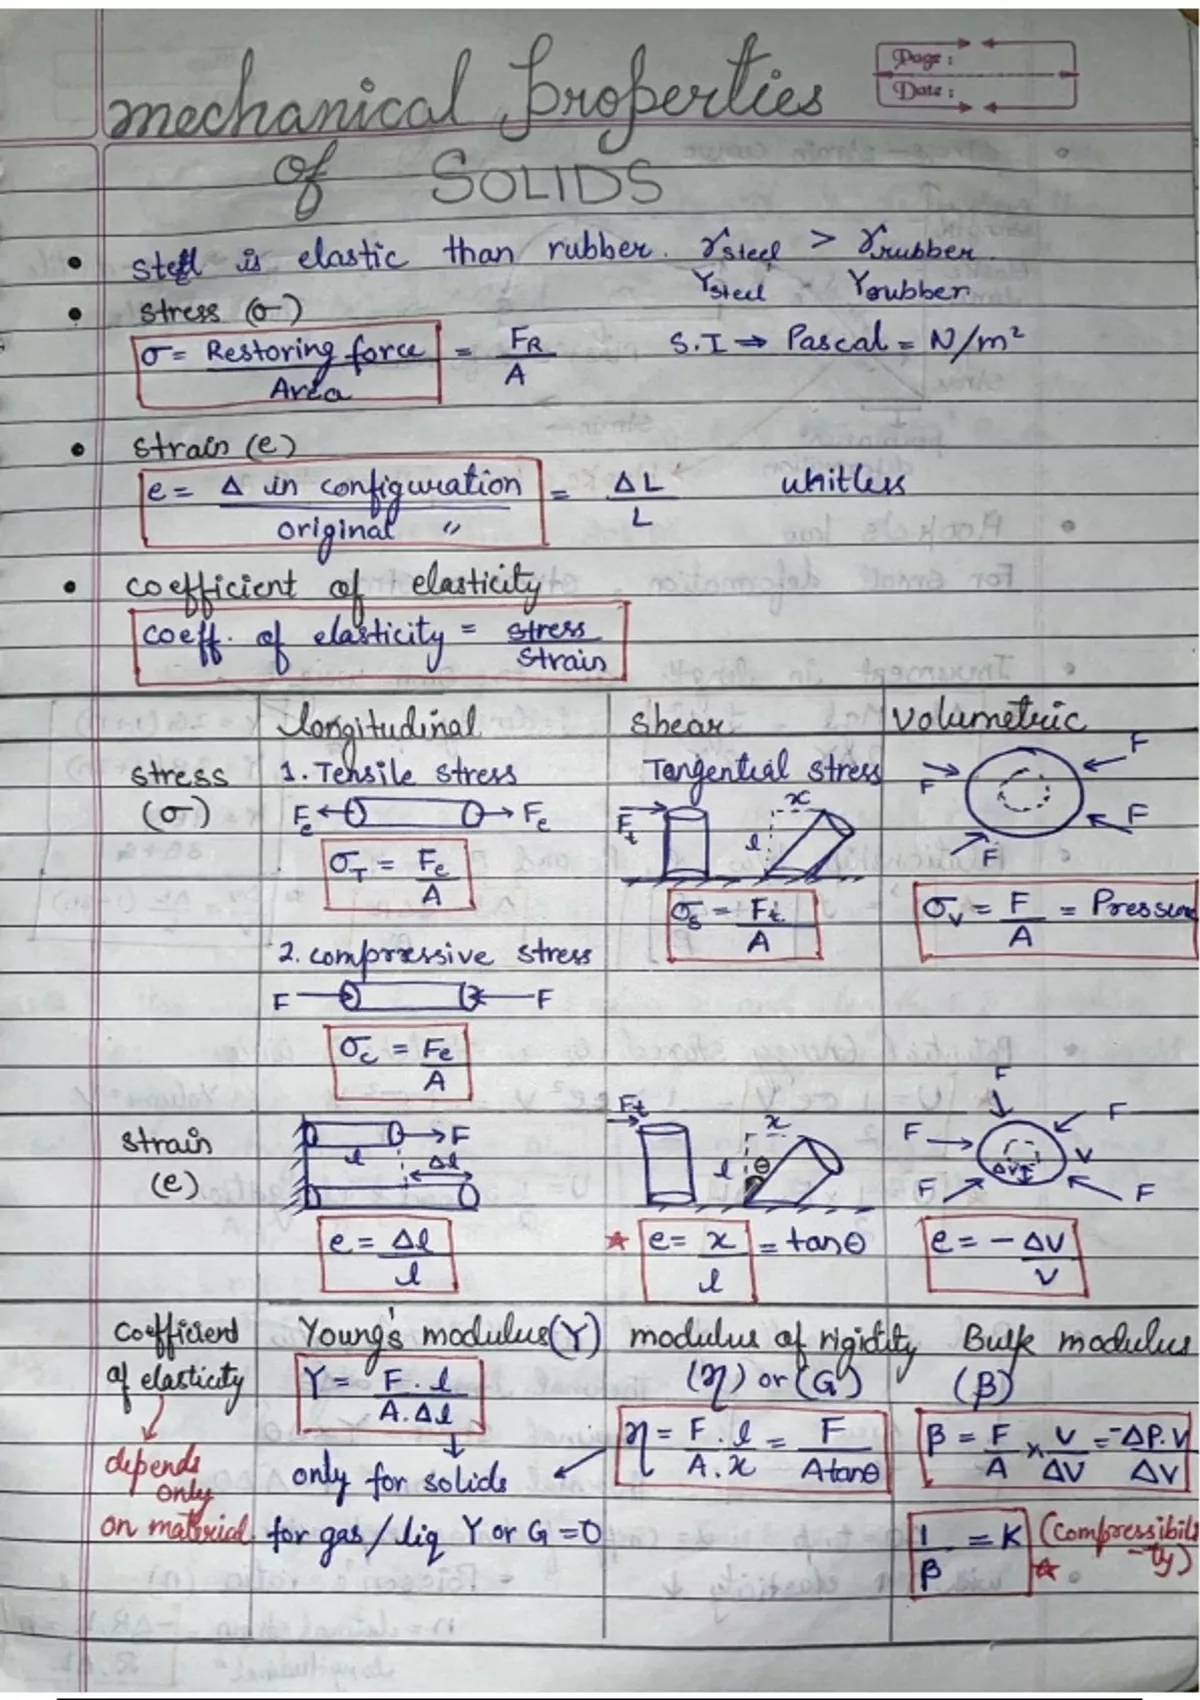 Page :
Date :
mechanical properties
of SOLIDS
• steel is elastic than rubber. γsteel > γrubber.
Ysteel Yrubber
• stress (σ)
σ = Restoring force / Area = FR / A S.I ⇒ Pascal = N/m²
• strain (e)
e = Δ in configuration / original " = ΔL / L unitless
• coefficient of elasticity
coeff. of elasticity = stress / strain
longitudinal shear volumetric
stress (σ)
1. Tensile stress
Fe Fe
σT = Fe / A
2. compressive stress
F F
σc = Fe / A
Tangential stress
Ft x l
σs = Ft / A
F F F F
σv = F / A = Pressure
strain (e)
l F Δl
e = Δl / l
Ft x l θ
* e = x / l = tanθ
F F F F F F V ΔV
e = - ΔV / V
coefficient of elasticity
depends only on material.
Young's modulus (Y)
Y = F . l / A . Δl
only for solids
for gas / liq Y or G = 0
modulus of rigidity
(η) or (G)
η = F . l / A . x = F / A tanθ
Bulk modulus
(β)
β = F / A × V / ΔV = -ΔP.V / ΔV
1 / β = K (compressibili-ty)
*